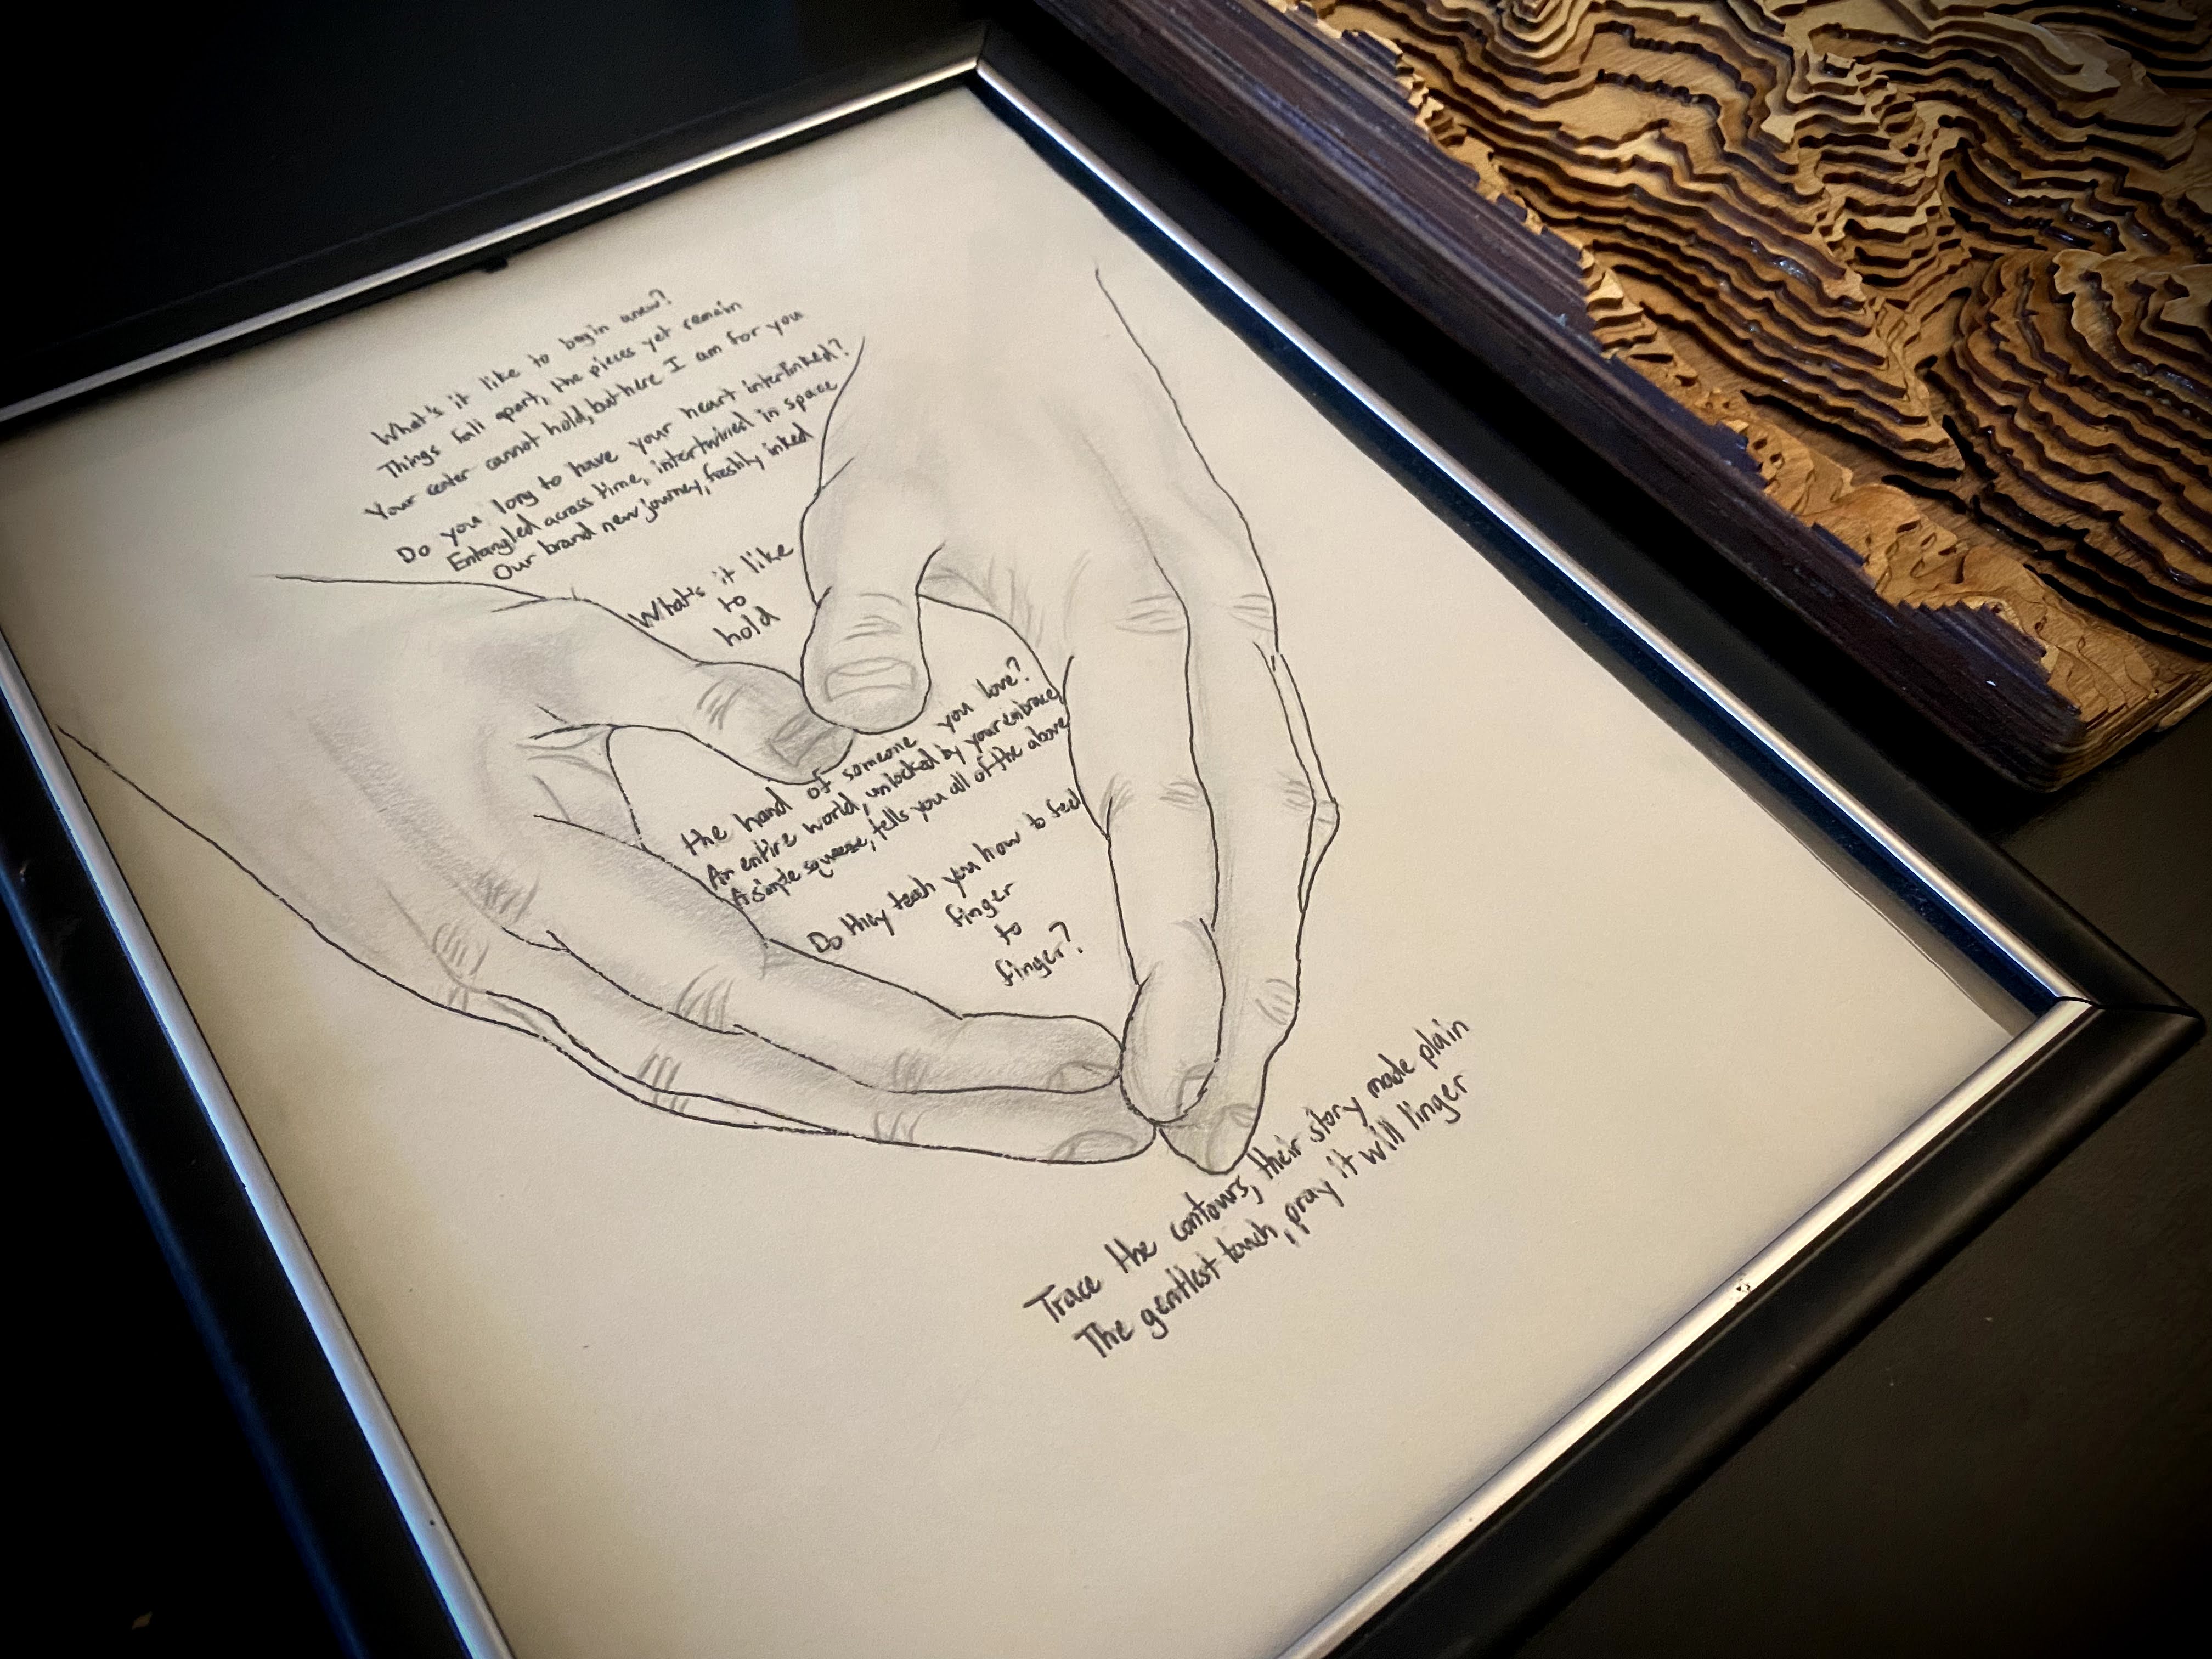 What's it like to begin anew?
Things fall apart, the pieces yet remain
Your center cannot hold, but here I am for you
Do you long to have your heart interlinked?
Entangled across time, intertwined in space
Our brand new journey, freshly inked
What's it like
to
hold
the hand of someone you love?
An entire world, unlocked by your embrace,
A simple squeeze, tells you all of the above
Do they teach you how to feel
finger
to
finger?
Trace the contours, their story made plain
The gentlest touch, pray it will linger